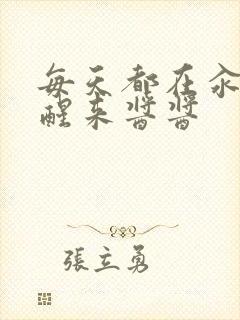 每天都在汆
醒来醬醬
張立勇